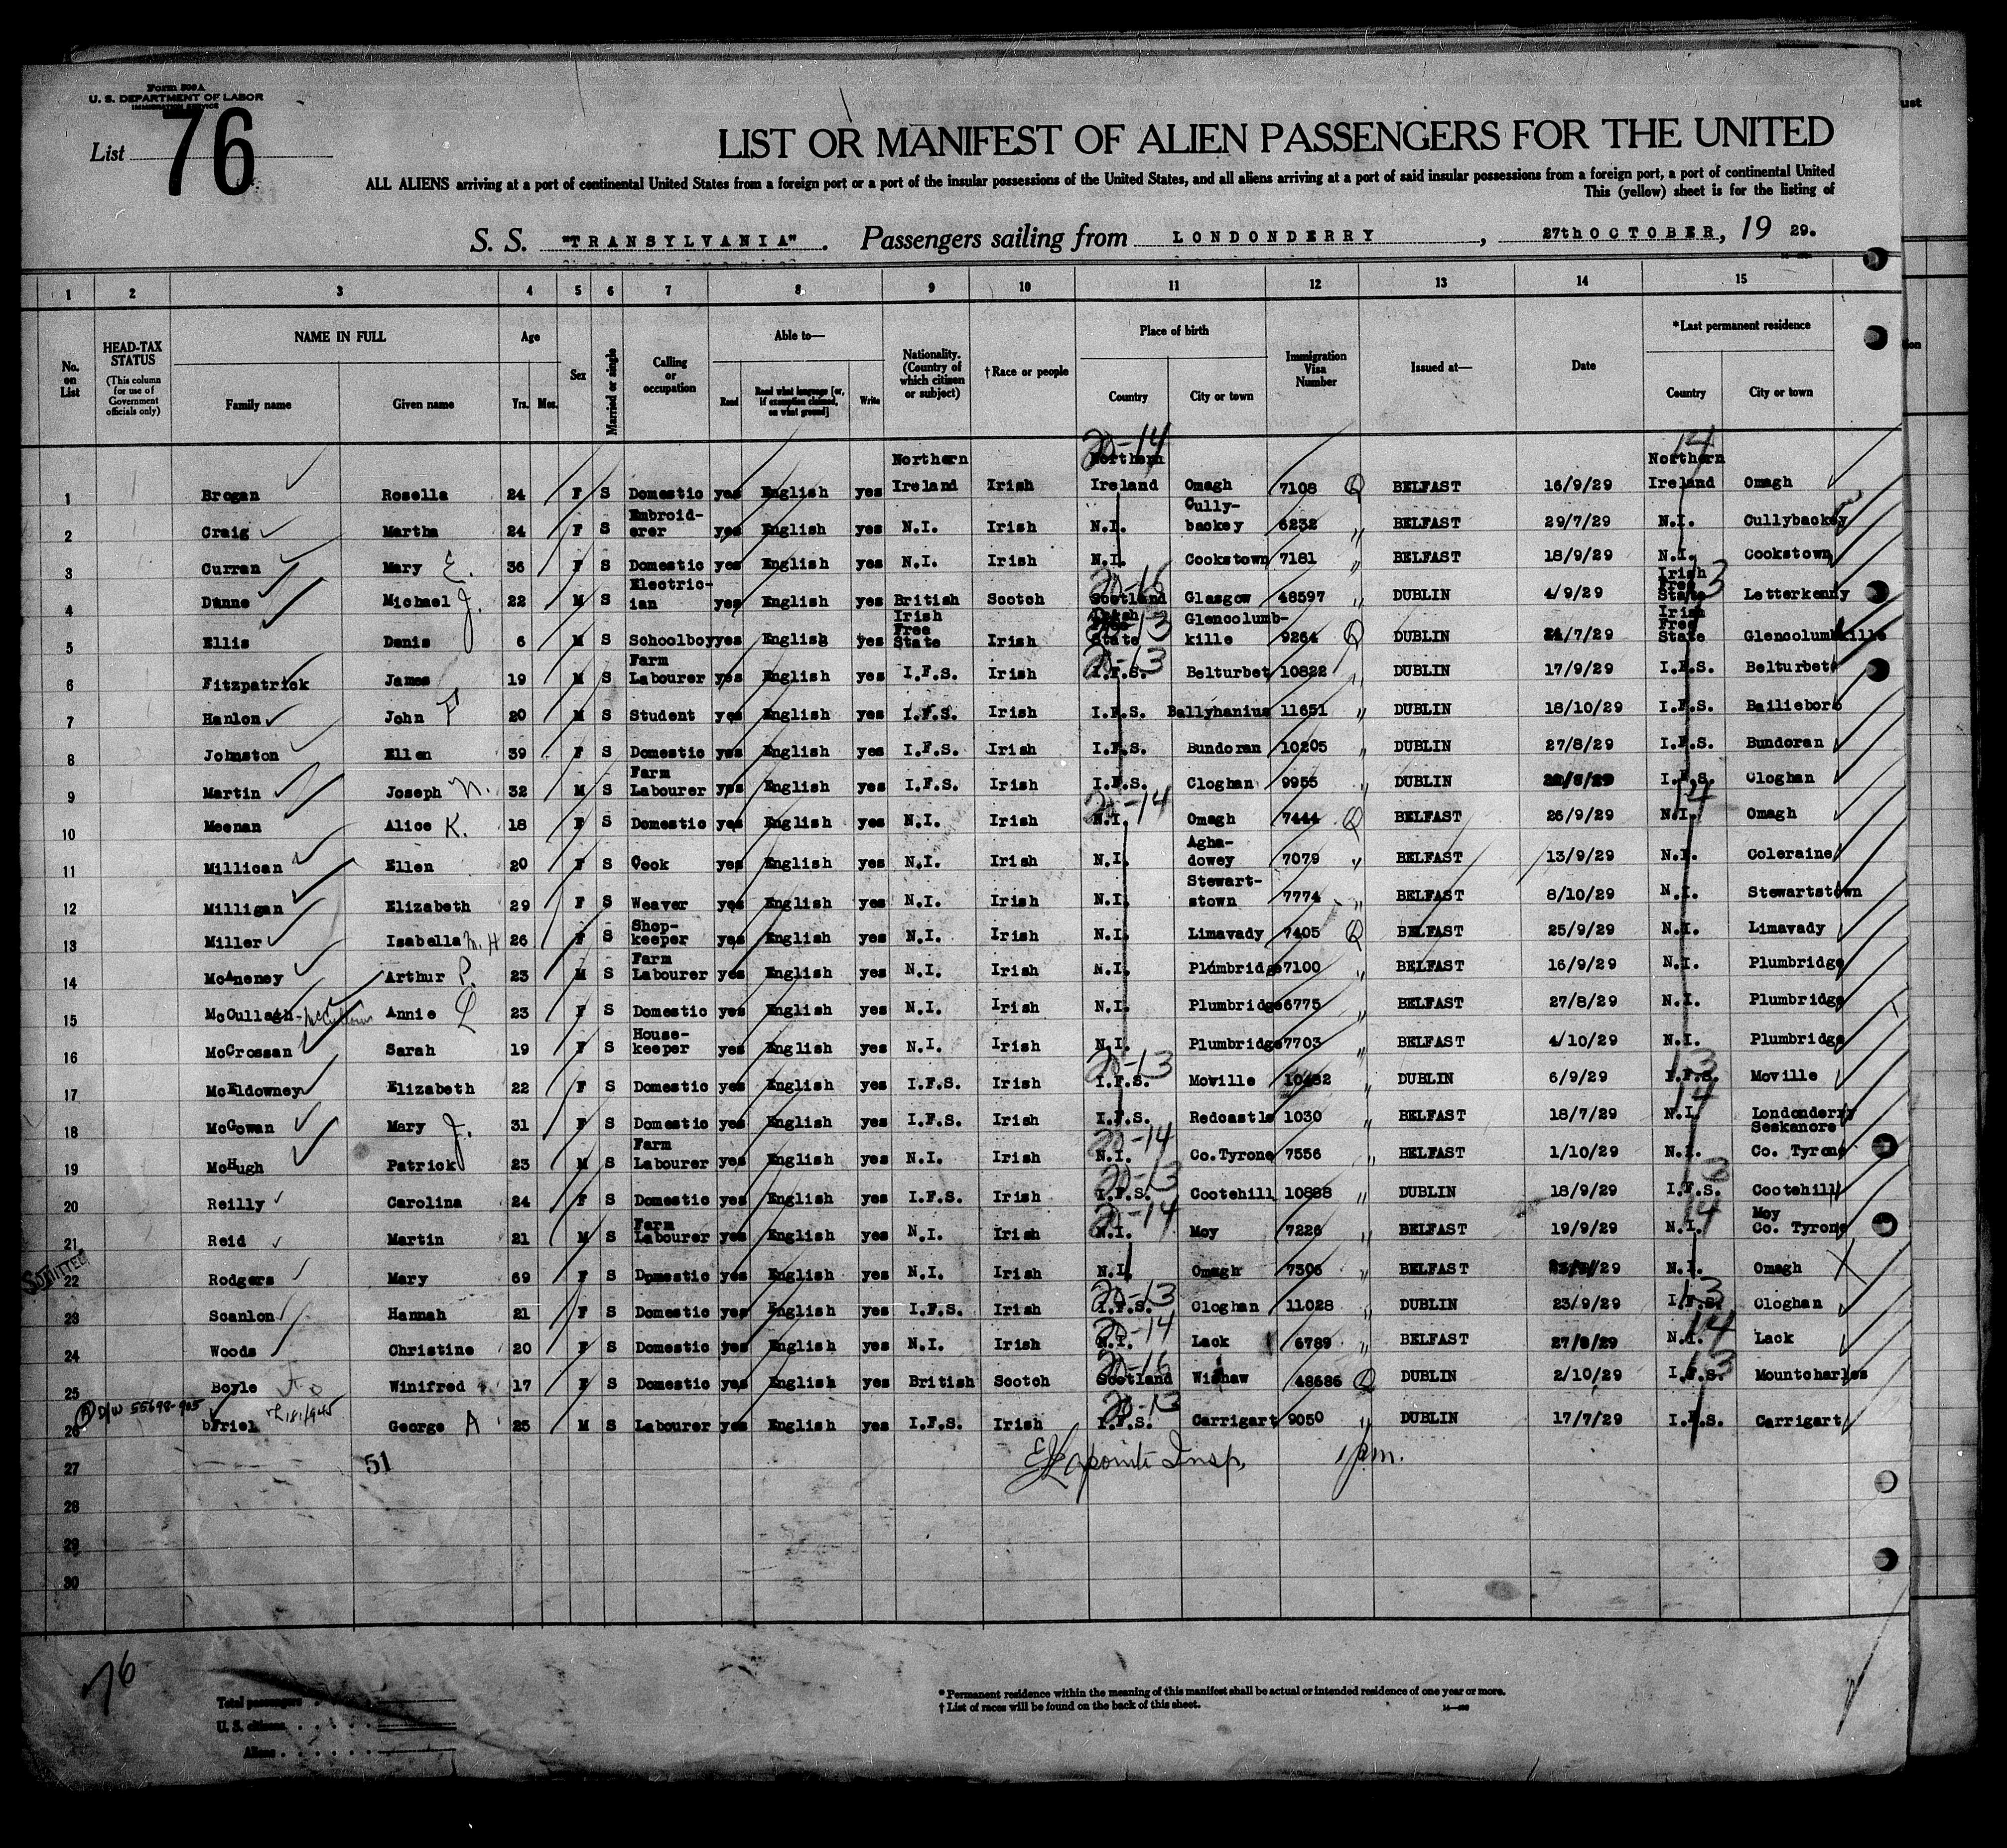 Form 500 A
U. S. DEPARTMENT OF LABOR
IMMIGRATION SERVICE
List 76
LIST OR MANIFEST OF ALIEN PASSENGERS FOR THE UNITED
ALL ALIENS arriving at a port of continental United States from a foreign port or a port of the insular possessions of the United States, and all aliens arriving at a port of said insular possessions from a foreign port, a port of continental United
This (yellow) sheet is for the listing of
S. S. "TRANSYLVANIA". Passengers sailing from LONDONDERRY, 27th OCTOBER, 19 29.
1 2 3 4 5 6 7 8 9 10 11 12 13 14 15
No. on List
HEAD-TAX STATUS (This column for use of Government officials only)
NAME IN FULL Family name Given name
Age Yrs. Mos.
Sex
Married or single
Calling or occupation
Able to— Read Read what language [or, if exemption claimed, on what ground] Write
Nationality. (Country of which citizen or subject)
† Race or people
Place of birth Country City or town
Immigration Visa Number
Issued at—
Date
* Last permanent residence Country City or town
20-14 14
1 Brogan Rosella 24 F S Domestic yes English yes Northern Ireland Irish Northern Ireland Omagh 7108 Q BELFAST 16/9/29 Northern Ireland Omagh
2 Craig Martha 24 F S Embroid-erer yes English yes N.I. Irish N.I. Cully-backey 6232 " BELFAST 29/7/29 N.I. Cullybackey
3 Curran Mary E. 36 F S Domestic yes English yes N.I. Irish N.I. Cookstown 7181 " BELFAST 18/9/29 N.I. Cookstown
4 Dunne Michael J. 22 M S Electric-ian yes English yes British Scotch 20-16 Scotland Glasgow 48597 " DUBLIN 4/9/29 Irish Free State 13 Letterkenny
5 Ellis Denis 6 M S Schoolboy yes English yes Irish Free State Irish Irish Free State 13 Glencolumb-kille 9264 Q DUBLIN 24/7/29 Irish Free State Glencolumbkille
6 Fitzpatrick James 19 M S Farm Labourer yes English yes I.F.S. Irish 20-13 I.F.S. Belturbet 10822 " DUBLIN 17/9/29 I.F.S. Belturbet
7 Hanlon John F 20 M S Student yes English yes I.F.S. Irish I.F.S. Ballyhanius 11651 " DUBLIN 18/10/29 I.F.S. Bailieboro
8 Johnston Ellen 39 F S Domestic yes English yes I.F.S. Irish I.F.S. Bundoran 10205 " DUBLIN 27/8/29 I.F.S. Bundoran
9 Martin Joseph N. 32 M S Farm Labourer yes English yes I.F.S. Irish I.F.S. Cloghan 9955 " DUBLIN 22/8/29 I.F.S. Cloghan
10 Meenan Alice K. 18 F S Domestic yes English yes N.I. Irish 20-14 N.I. Omagh 7444 Q BELFAST 26/9/29 14 N.I. Omagh
11 Millican Ellen 20 F S Cook yes English yes N.I. Irish N.I. Agha-dowey 7079 " BELFAST 13/9/29 N.I. Coleraine
12 Milligan Elizabeth 29 F S Weaver yes English yes N.I. Irish N.I. Stewart-stown 7774 " BELFAST 8/10/29 N.I. Stewartstown
13 Miller Isabella M. H 26 F S Shop-keeper yes English yes N.I. Irish N.I. Limavady 7405 Q BELFAST 25/9/29 N.I. Limavady
14 McAneney Arthur P. 23 M S Farm Labourer yes English yes N.I. Irish N.I. Plumbridge 7100 " BELFAST 16/9/29 N.I. Plumbridge
15 McCullagh Annie 23 F S Domestic yes English yes N.I. Irish N.I. Plumbridge 6775 " BELFAST 27/8/29 N.I. Plumbridge
16 McCrossan Sarah 19 F S House-keeper yes English yes N.I. Irish N.I. Plumbridge 7703 " BELFAST 4/10/29 N.I. Plumbridge
17 McEldowney Elizabeth 22 F S Domestic yes English yes I.F.S. Irish 20-13 I.F.S. Moville 10482 " DUBLIN 6/9/29 13 I.F.S. Moville
18 McGowan Mary J. 31 F S Domestic yes English yes I.F.S. Irish I.F.S. Redcastle 1030 " BELFAST 18/7/29 14 N.I. Londonderry
19 McHugh Patrick 23 M S Farm Labourer yes English yes N.I. Irish 20-14 N.I. Co. Tyrone 7556 " BELFAST 1/10/29 N.I. Seskanore Co. Tyrone
20 Reilly Carolina 24 F S Domestic yes English yes I.F.S. Irish 20-13 I.F.S. Cootehill 10888 " DUBLIN 18/9/29 13 I.F.S. Cootehill
21 Reid Martin 21 M S Farm Labourer yes English yes N.I. Irish 20-14 N.I. Moy 7226 " BELFAST 19/9/29 14 N.I. Moy Co. Tyrone
ADMITTED
22 Rodgers Mary 69 F S Domestic yes English yes N.I. Irish N.I. Omagh 7306 " BELFAST N.I. Omagh X
23 Scanlon Hannah 21 F S Domestic yes English yes I.F.S. Irish 20-13 I.F.S. Cloghan 11028 " DUBLIN 23/9/29 13 I.F.S. Cloghan
24 Woods Christine 20 F S Domestic yes English yes N.I. Irish 20-14 N.I. Lack 6789 " BELFAST 27/8/29 14 N.I. Lack
25 Boyle Winifred 17 F S Domestic yes English yes British Scotch 20-16 Scotland Wishaw 48686 Q DUBLIN 2/10/29 13 I.F.S. Mountcharles
D/W 55698-905
26 Friel George A 25 M S Labourer yes English yes I.F.S. Irish 20-13 I.F.S. Carrigart 9050 " DUBLIN 17/7/29 I.F.S. Carrigart
27 51 Lapointe Insp. 1 p.m.
28
29
30
76
Total passengers
U. S. citizens
Aliens
* Permanent residence within the meaning of this manifest shall be actual or intended residence of one year or more.
† List of races will be found on the back of this sheet.